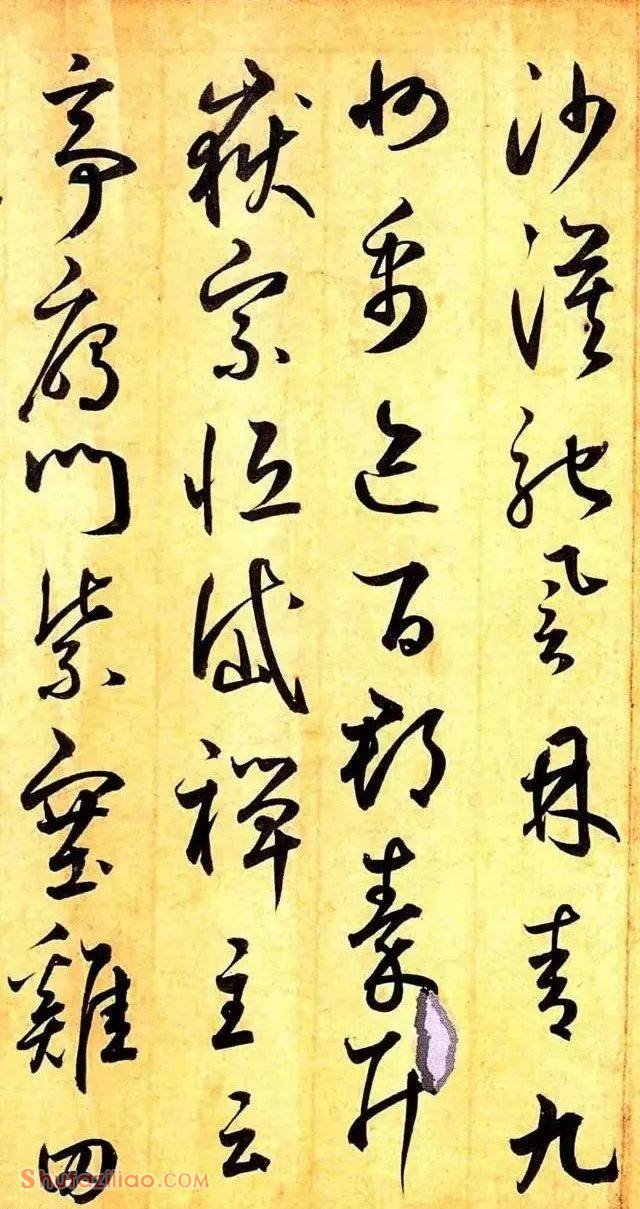 沙漠馳譽丹青九
州禹迹百郡秦并
嶽宗恒岱禪主云
亭鴈門紫塞雞田
Shufaziliao.com